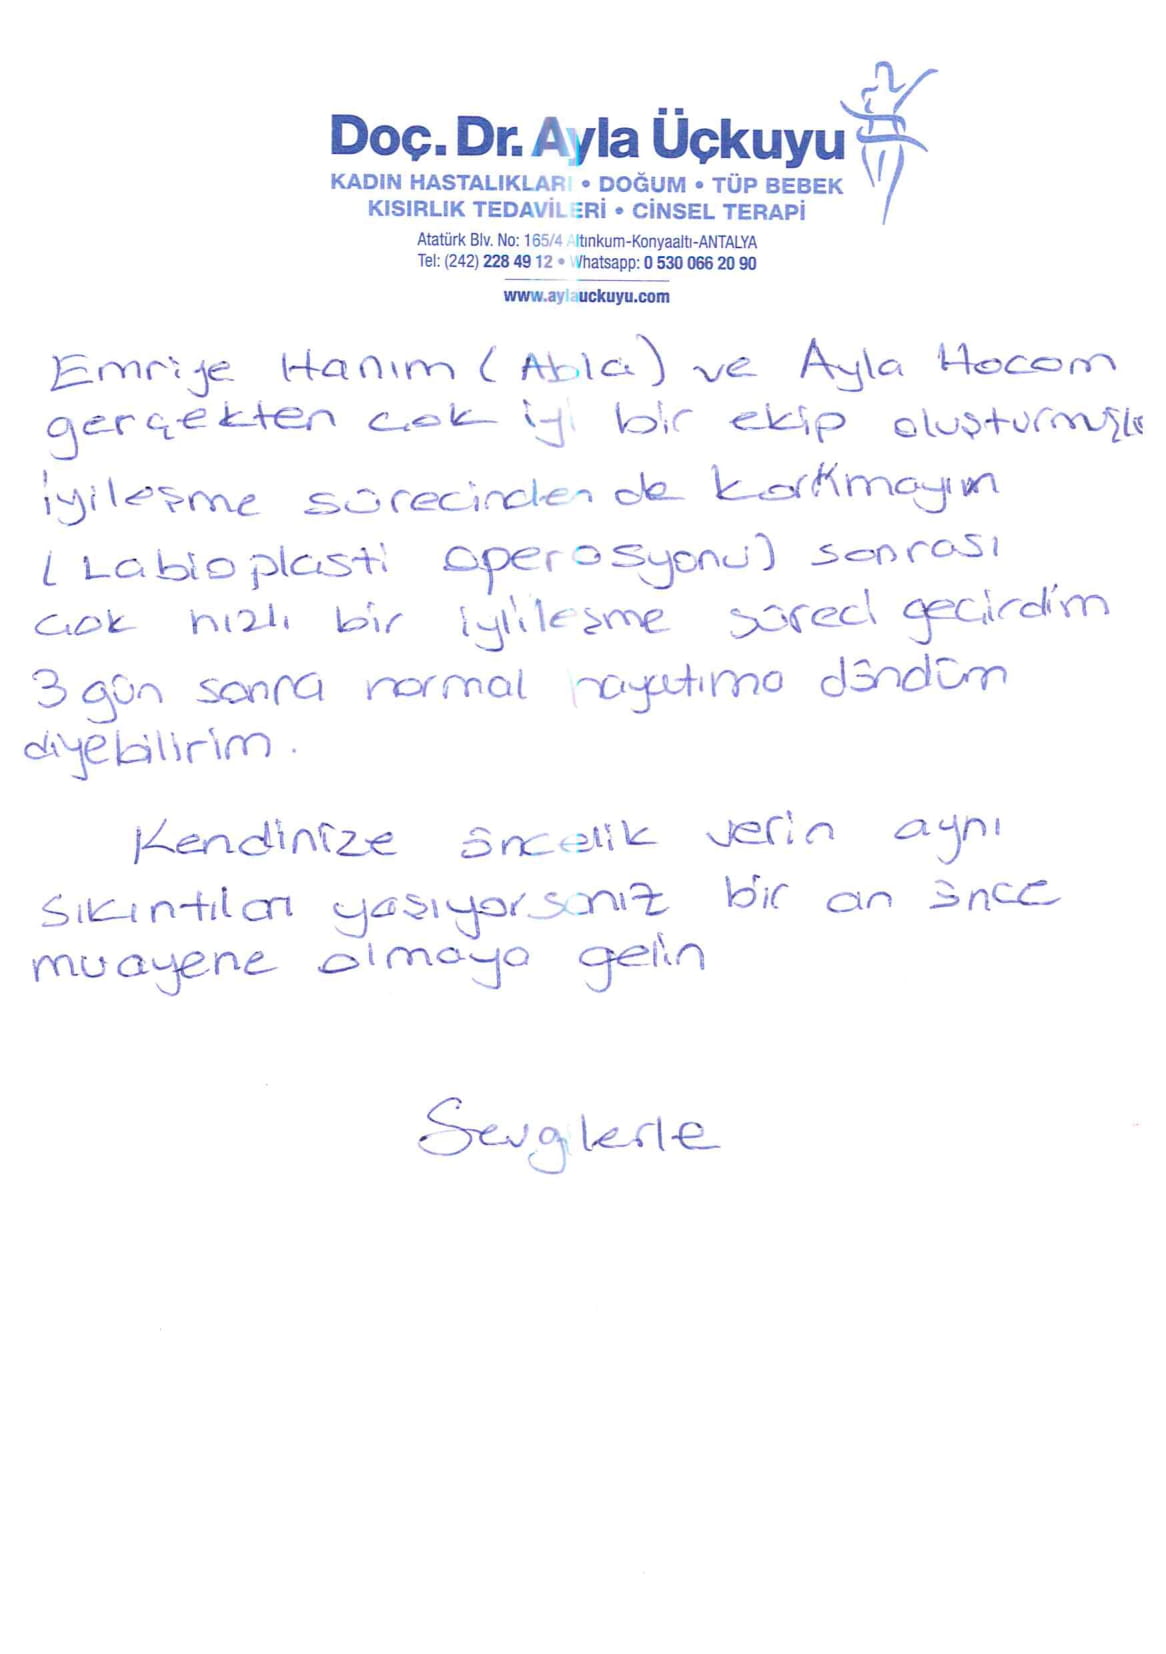 Doç. Dr. Ayla Üçkuyu
KADIN HASTALIKLARI • DOĞUM • TÜP BEBEK
KISIRLIK TEDAVİLERİ • CİNSEL TERAPİ
Atatürk Blv. No: 165/4 Altınkum-Konyaaltı-ANTALYA
Tel: (242) 228 49 12 • Whatsapp: 0 530 066 20 90
www.aylauckuyu.com
Emriye Hanım (Abla) ve Ayla Hocam
gerçekten çok iyi bir ekip
iyileşme sürecinden de korkmayın
(Labioplasti operasyonu) sonrası
çok hızlı bir iyileşme süreci geçirdim
3 gün sonra normal hayatıma döndüm
diyebilirim.
Kendinize öncelik verin aynı
sıkıntıları yaşıyorsanız bir an önce
muayene olmaya gelin
Sevgilerle